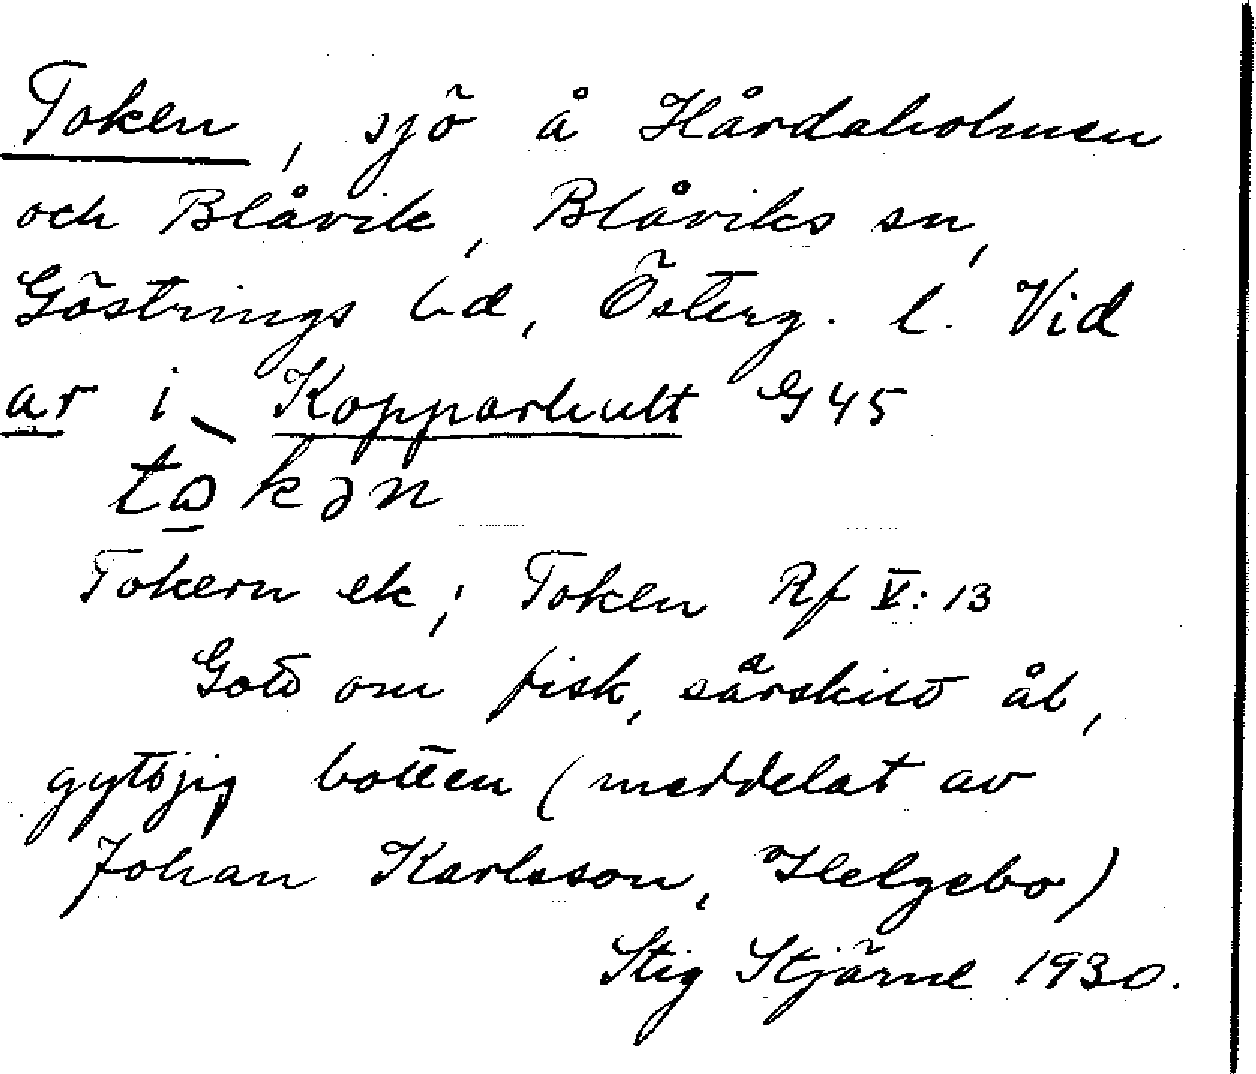 Token, sjö å Hårdaholmen
och Blåvik, Blåviks sn,
Göstrings hd, Österg. l. Vid
ar i Kopparhult G45
tɷkən
Tokern ek; Token Rf V:13
Gott om fisk, särskilt ål,
gyttjig botten (meddelat av
Johan Karlsson, Helgebo)
Stig Stjärne 1930.